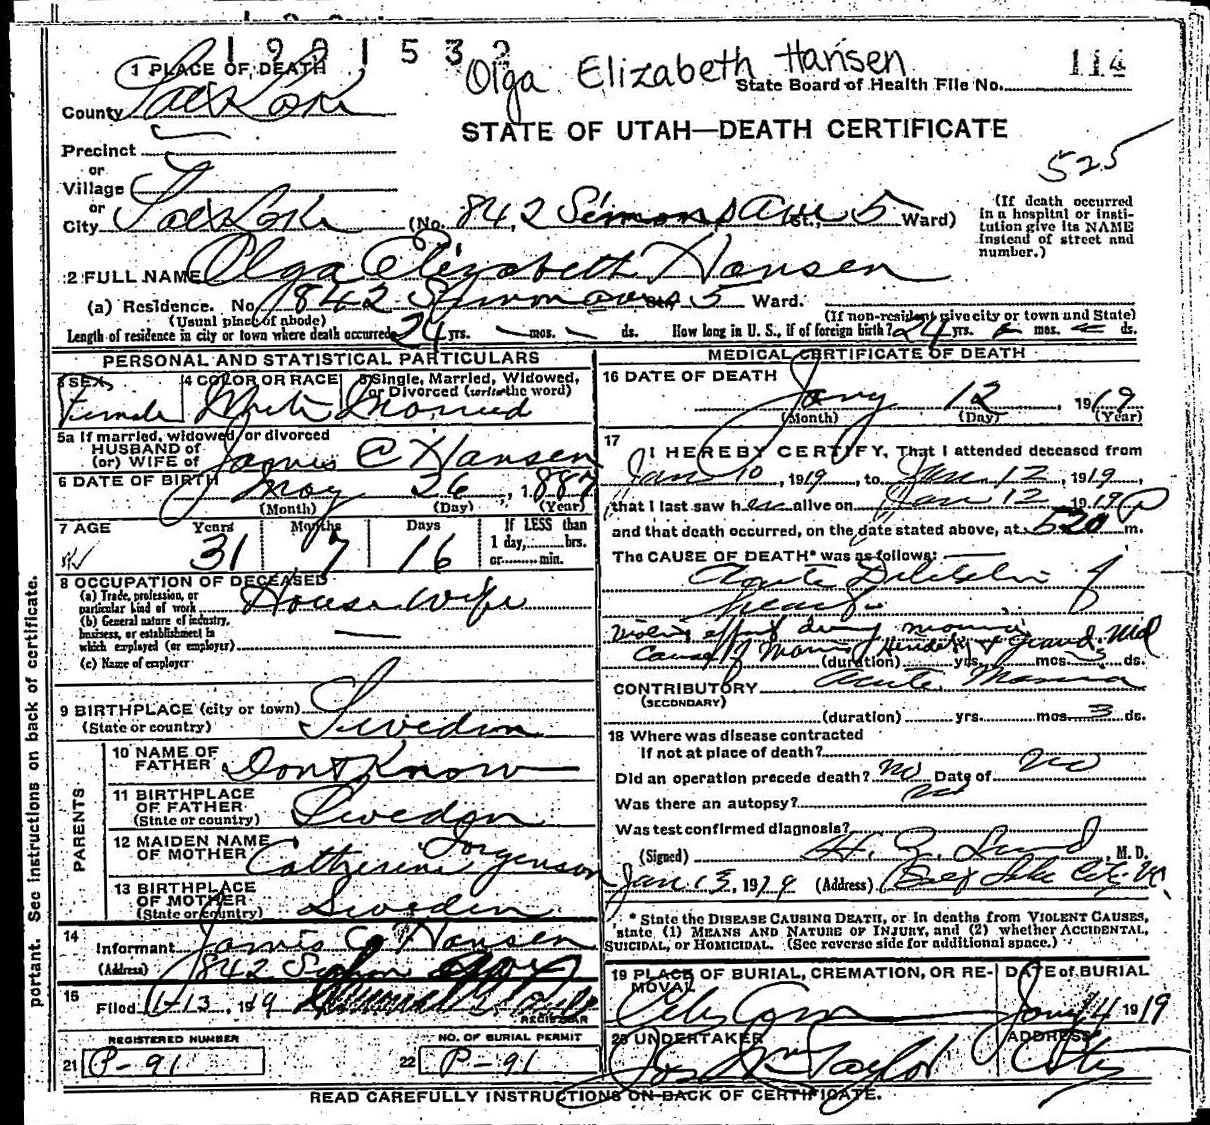 1901532
Olga Elizabeth Hansen
114
1 PLACE OF DEATH
State Board of Health File No.
County Salt Lake
STATE OF UTAH—DEATH CERTIFICATE
Precinct
525
or
Village
or
City Salt Lake (No. 842 Simons Ave St., 5 Ward)
(If death occurred in a hospital or insti-
tution give its NAME
instead of street and
number.)
2 FULL NAME Olga Elizabeth Hansen
(a) Residence. No. 842 Simon ave St., 5 Ward.
(Usual place of abode) (If non-resident give city or town and State)
Length of residence in city or town where death occurred 24 yrs. — mos. — ds. How long in U. S., if of foreign birth? 24 yrs. mos. ds.
PERSONAL AND STATISTICAL PARTICULARS
3 SEX Female
4 COLOR OR RACE White
5 Single, Married, Widowed,
or Divorced (write the word) Married
5a If married, widowed, or divorced
HUSBAND of
(or) WIFE of James C Hansen
6 DATE OF BIRTH May 26, 1887
(Month) (Day) (Year)
7 AGE Years Months Days If LESS than
31 7 16 1 day, hrs.
or min.
8 OCCUPATION OF DECEASED
(a) Trade, profession, or
particular kind of work House Wife
(b) General nature of industry,
business, or establishment in
which employed (or employer) —
(c) Name of employer
9 BIRTHPLACE (city or town)
(State or country) Sweden
PARENTS
10 NAME OF
FATHER Dont Know
11 BIRTHPLACE
OF FATHER
(State or country) Sweden
12 MAIDEN NAME
OF MOTHER Catherine Jorgenson
13 BIRTHPLACE
OF MOTHER
(State or country) Sweden
14
Informant James C Hansen
(Address) 842
15
Filed 1-13, 1919
REGISTRAR
REGISTERED NUMBER
21 P-91
NO. OF BURIAL PERMIT
22 P-91
MEDICAL CERTIFICATE OF DEATH
16 DATE OF DEATH
Jany 12, 1919
(Month) (Day) (Year)
17
I HEREBY CERTIFY, That I attended deceased from
Jan 10, 1919, to Jan. 12, 1919,
that I last saw her alive on Jan 12 1919
and that death occurred, on the date stated above, at 520 P m.
The CAUSE OF DEATH* was as follows:
Acute Dilatation of
Heart
(duration) yrs. mos. ds.
CONTRIBUTORY Acute Mania
(SECONDARY)
(duration) yrs. mos. 3 ds.
18 Where was disease contracted
if not at place of death?
Did an operation precede death? No Date of no
Was there an autopsy? no
Was test confirmed diagnosis?
(Signed) , M. D.
Jan 13, 1919 (Address) Salt Lake City Ut.
* State the DISEASE CAUSING DEATH, or in deaths from VIOLENT CAUSES,
state (1) MEANS AND NATURE OF INJURY, and (2) whether ACCIDENTAL,
SUICIDAL, or HOMICIDAL. (See reverse side for additional space.)
19 PLACE OF BURIAL, CREMATION, OR RE-
MOVAL City Cem
DATE of BURIAL
Jany 14 1919
20 UNDERTAKER
Jos Wm Taylor
ADDRESS
City
READ CAREFULLY INSTRUCTIONS ON BACK OF CERTIFICATE.
portant. See instructions on back of certificate.